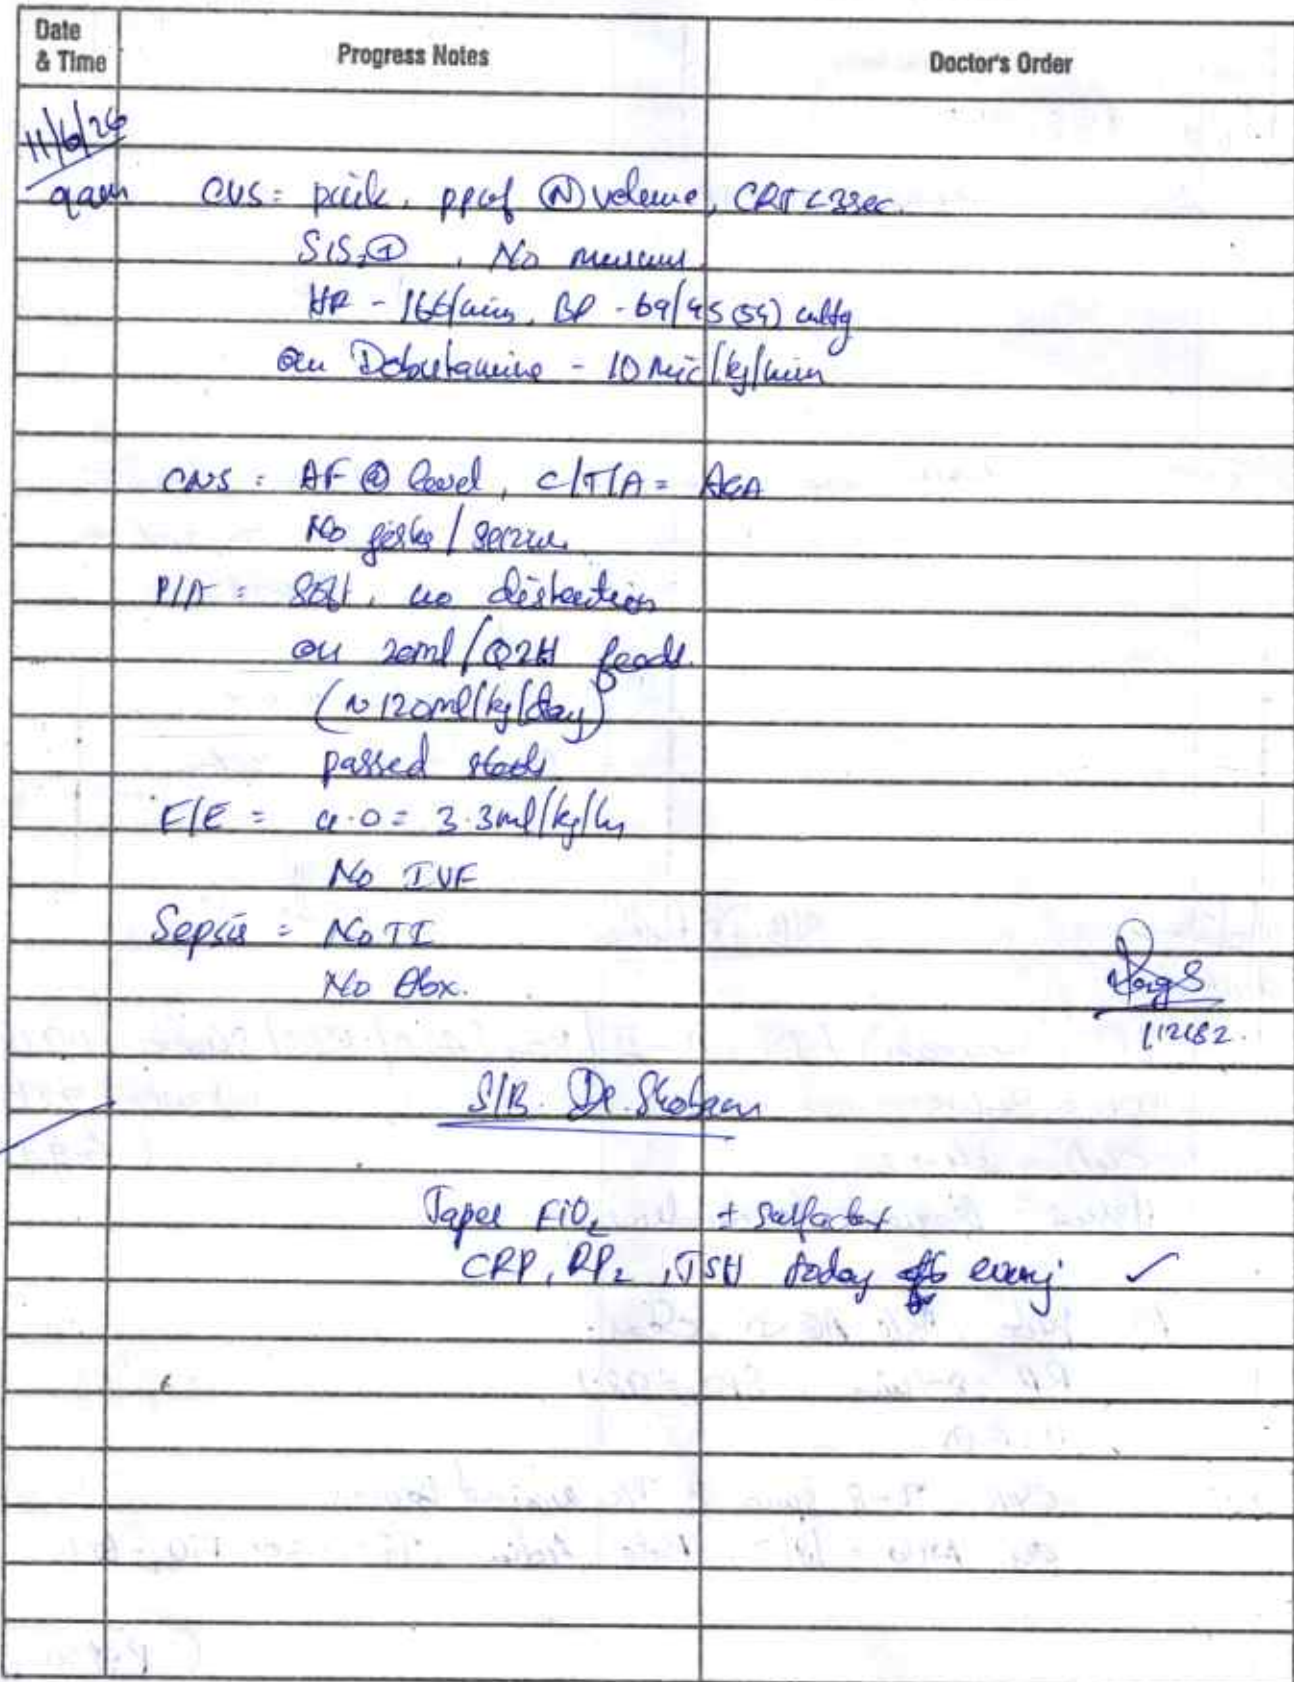 Date & Time
Progress Notes
Doctor's Order
11/6/26
9am
CVS = pink, pp of Ⓝ volume, CRT <3sec.
S1S2 ⊕, No murmur
HR - 166/min, BP - 69/45 (54) mmHg
on Dobutamine - 10 mic/kg/min
CNS = AF @ level, C/T/A = AGA
No jerks / seizure
P/A = Soft, no distention
on 20ml/Q2H feeds.
(~ 120ml/kg/day)
passed stools
F/E = u.o = 3.3ml/kg/hr
No IVF
Sepsis = No TI
No Abx.
112682.
S/B. Dr.
Taper FiO2 ± surfactant
CRP, RP2, TSH today